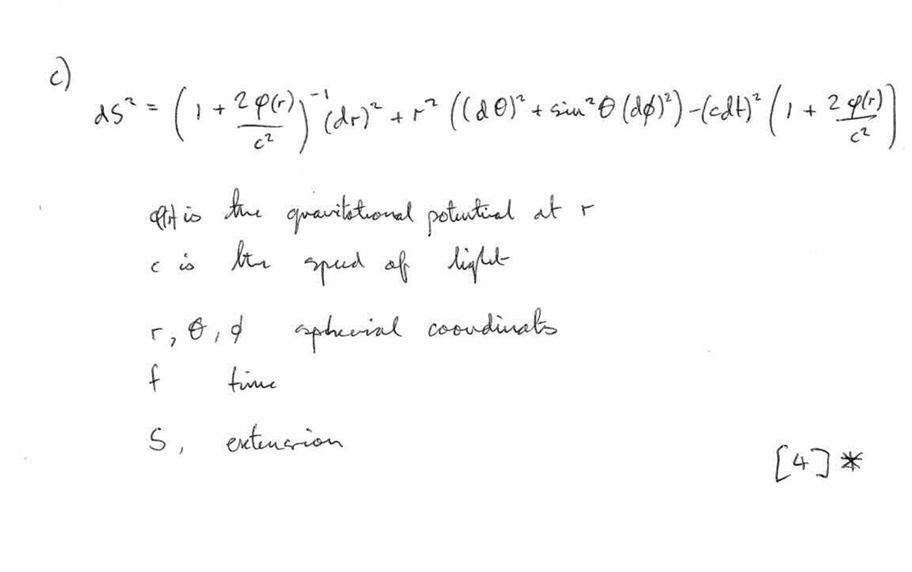 c)
dS² = (1 + 2φ(r)/c²)⁻¹ (dr)² + r² ((dθ)² + sin²θ (dϕ)²) - (cdt)² (1 + 2φ(r)/c²)
φ(r) is the gravitational potential at r
c is the speed of light
r, θ, ϕ spherical coordinates
t time
S, extension
[4] *